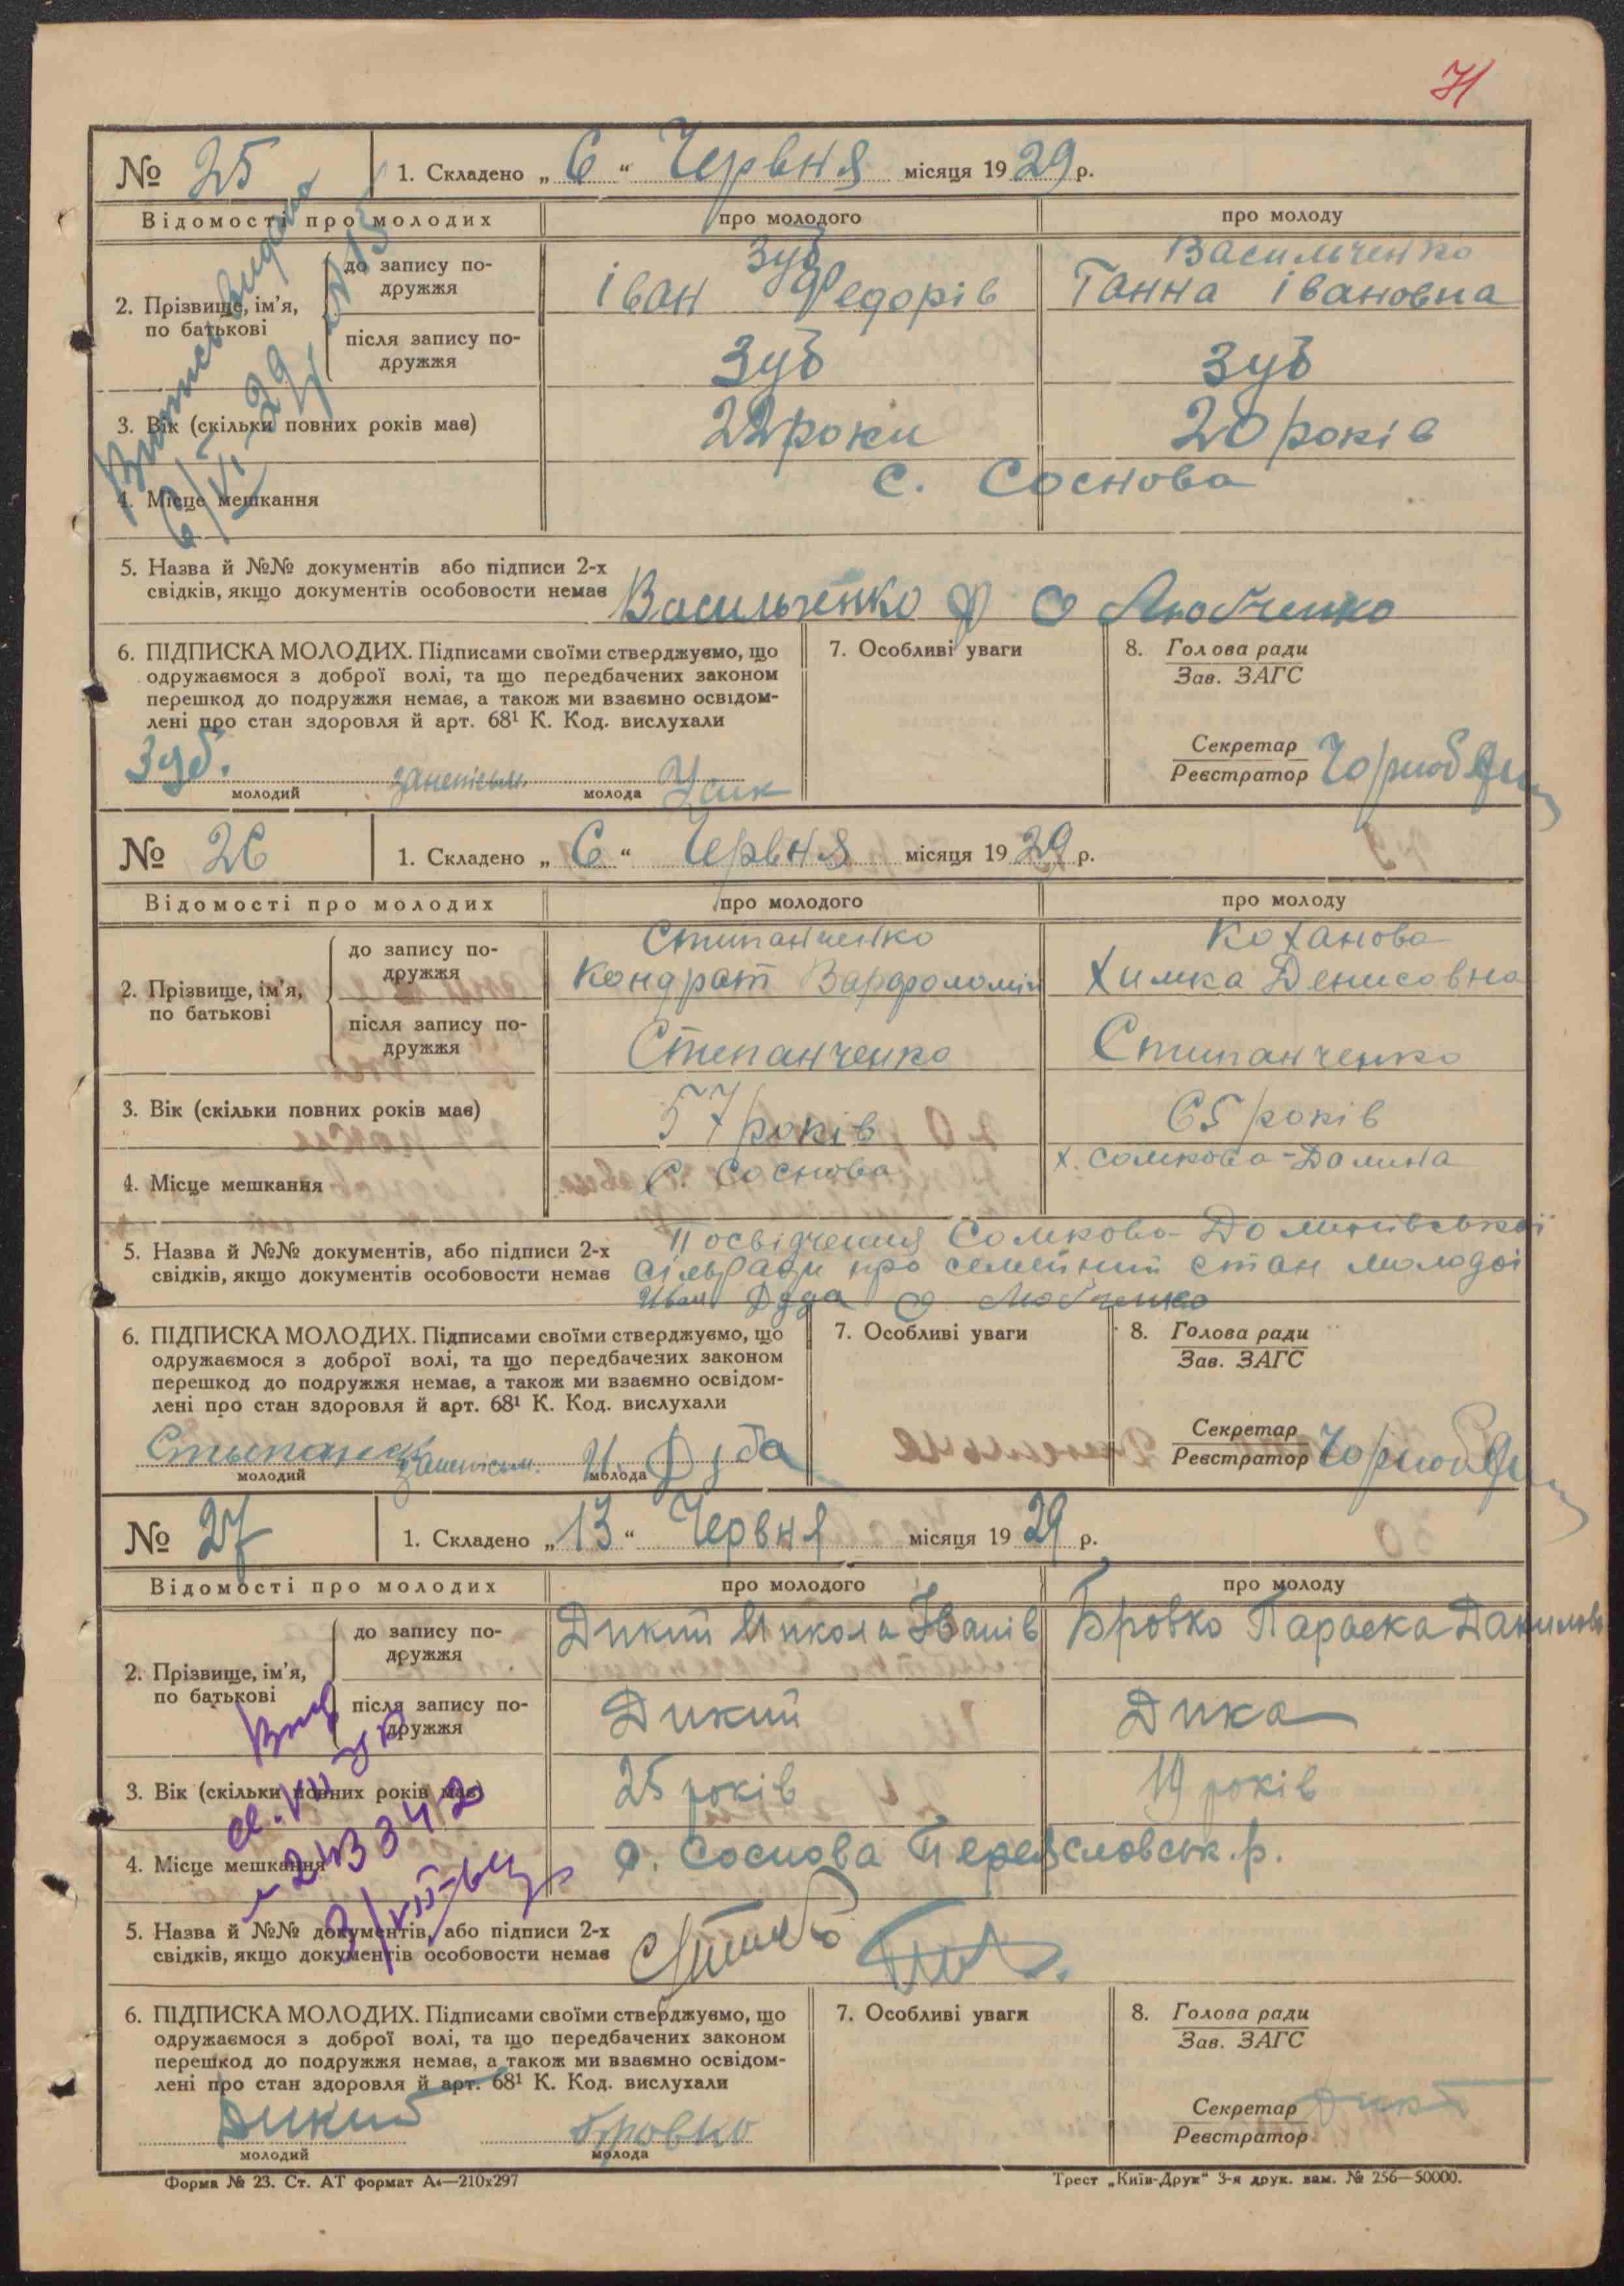 71
№ 25
1. Складено „6“ Червня місяця 1929 р.
Відомості про молодих
про молодого
про молоду
2. Прізвище, ім’я, по батькові
до запису по-
дружжя
Зуб
Іван Федорів
Васильченко
Ганна Івановна
після запису по-
дружжя
Зуб
Зуб
3. Вік (скільки повних років має)
22 роки
20 років
4. Місце мешкання
с. Соснова
Выпись видана
6/VI-29
5. Назва й №№ документів або підписи 2-х
свідків, якщо документів особовости немає
Васильченко Ф О Любченко
6. ПІДПИСКА МОЛОДИХ. Підписами своїми стверджуємо, що
одружаємося з доброї волі, та що передбачених законом
перешкод до подружжя немає, а також ми взаємно освідом-
лені про стан здоровля й арт. 68¹ К. Код. вислухали
Зуб.
занеписьм.
молодий
молода
7. Особливі уваги
8. Голова ради
Зав. ЗАГС
Секретар
Реєстратор
№ 26
1. Складено „6“ Червня місяця 1929 р.
Відомості про молодих
про молодого
про молоду
2. Прізвище, ім’я,
по батькові
до запису по-
дружжя
Стипанченко
Кондрат Варфоломій
Коханова
Химка Денисовна
після запису по-
дружжя
Степанченко
Стипанченко
3. Вік (скільки повних років має)
57 років
65 років
4. Місце мешкання
С. Соснова
х. Сомкова-Долина
5. Назва й №№ документів, або підписи 2-х
свідків, якщо документів особовости немає
Посвідчення Сомково-Долинівської
сільради про семейний стан молодої
Иван Дуда О. Любченко
6. ПІДПИСКА МОЛОДИХ. Підписами своїми стверджуємо, що
одружаємося з доброї волі, та що передбачених законом
перешкод до подружжя немає, а також ми взаємно освідом-
лені про стан здоровля й арт. 68¹ К. Код. вислухали
занеписьм. И. Дуба
молодий
молода
7. Особливі уваги
8. Голова ради
Зав. ЗАГС
Секретар
Реєстратор
№ 27
1. Складено „13“ Червня місяця 1929 р.
Відомості про молодих
про молодого
про молоду
2. Прізвище, ім’я,
по батькові
до запису по-
дружжя
Дикий Микола Іванів
Бровко Параска Данилов
після запису по-
дружжя
Дикий
Дика
3. Вік (скільки повних років має)
25 років
19 років
4. Місце мешкання
с. Соснова Переяславськ. р.
5. Назва й №№ документів, або підписи 2-х
свідків, якщо документів особовости немає
6. ПІДПИСКА МОЛОДИХ. Підписами своїми стверджуємо, що
одружаємося з доброї волі, та що передбачених законом
перешкод до подружжя немає, а також ми взаємно освідом-
лені про стан здоровля й арт. 68¹ К. Код. вислухали
Дикий
Бровко
молодий
молода
7. Особливі уваги
8. Голова ради
Зав. ЗАГС
Секретар
Реєстратор
Форма № 23. Ст. АТ формат А₄—210х297
Трест „Київ-Друк“ 3-я друк. зам. № 256—50000.